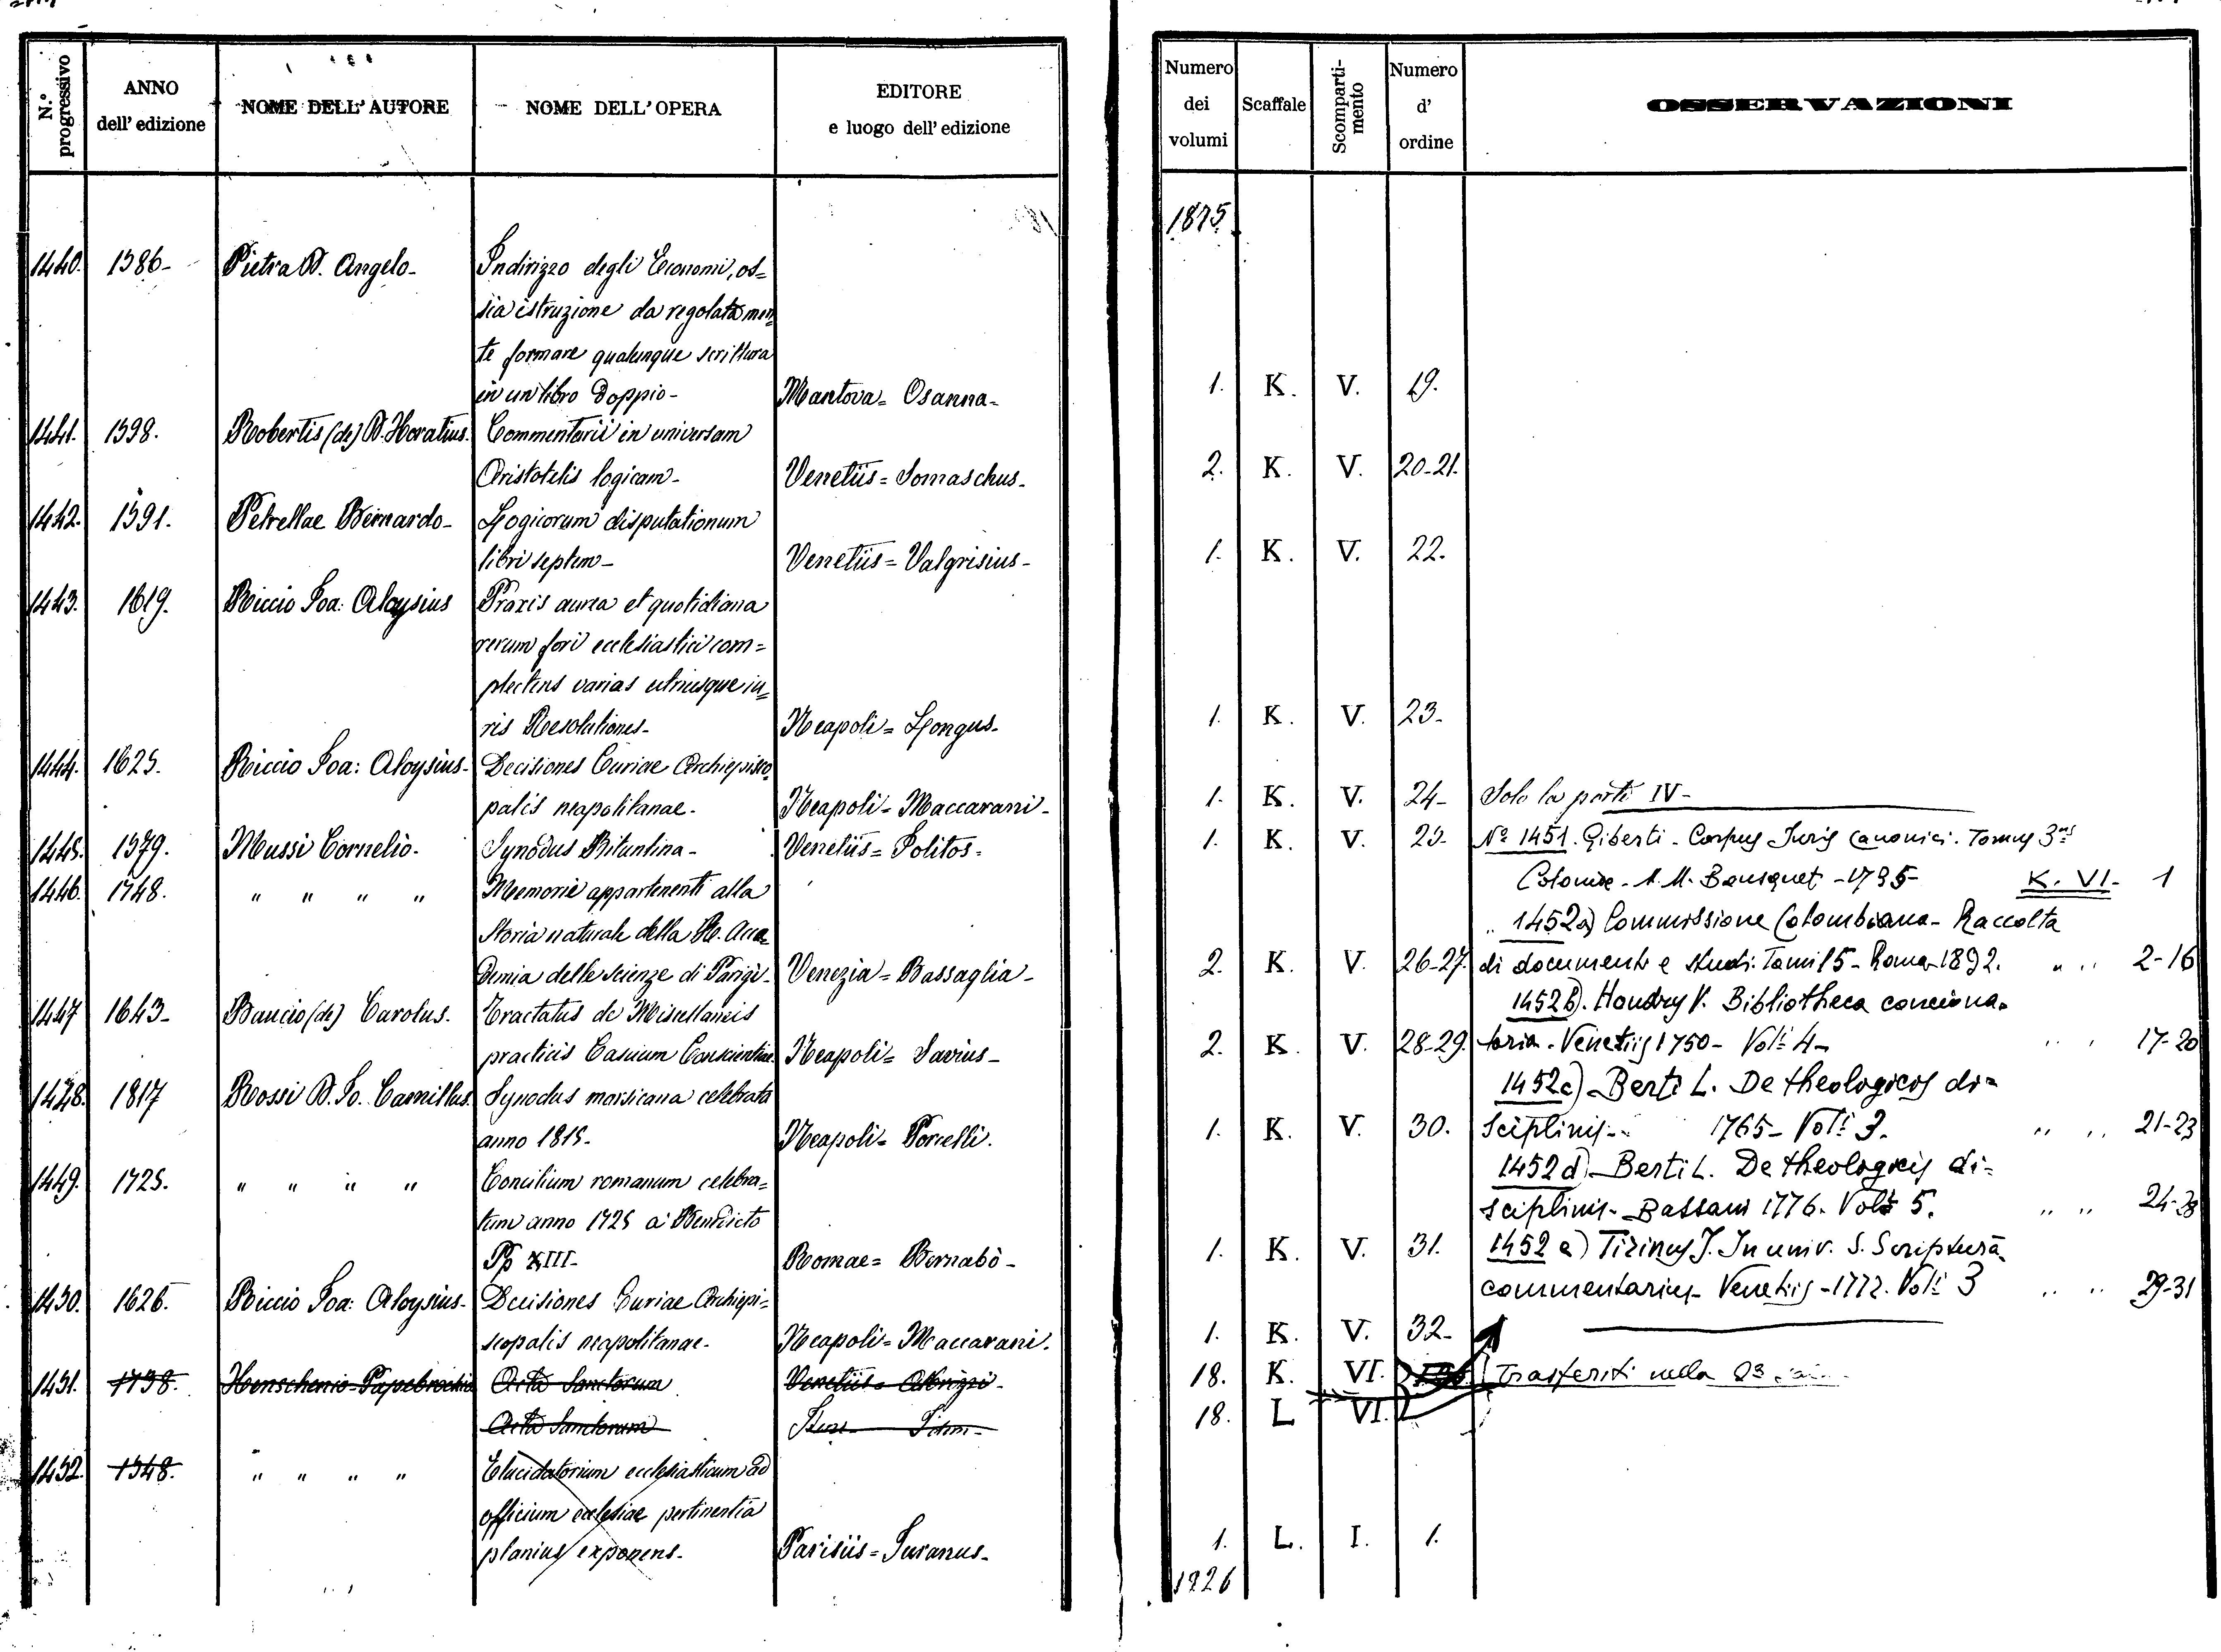 N.° progressivo
ANNO dell' edizione
NOME DELL' AUTORE
NOME DELL' OPERA
EDITORE e luogo dell' edizione
Numero dei volumi
Scaffale
Scomparti-mento
Numero d' ordine
OSSERVAZIONI
1875.
1440. 1586- Pietra D. Angelo- Indirizzo degli Economi, os=
sia istruzione da regolatamen=
te formare qualunque scrittura
in un libro doppio- Mantova= Osanna- 1. K. V. 19.
1441. 1598. Robertis (de) D. Horatius. Commentarii in universam
Aristotelis logicam- Venetiis= Somaschus- 2. K. V. 20-21.
1442. 1591. Petrellae Bernardo- Logicorum disputationum
libri septem- Venetiis= Valgrisius- 1. K. V. 22.
1443. 1619. Riccio Joa: Aloysius Praxis aurea et quotidiana
rerum fori ecclesiastici com=
plectens varias utriusque iu=
ris Resolutiones- Neapoli= Longus- 1. K. V. 23-
1444. 1625. Riccio Joa: Aloysius- Decisiones Curiae Archiepisco
palis neapolitanae- Neapoli= Maccarani- 1. K. V. 24- Solo la parte IV-
1445. 1579. Mussi Cornelio- Synodus Bituntina- Venetiis= Politos- 1. K. V. 25- N° 1451. Giberti- Corpus Juris Canonici. Tomus 3us
1446. 1748. " " " " Memorie appartenenti alla Coloniae- M. M. Bousquet -1735- K. VI- 1
Storia naturale della R. Acca= " 1452a) Commissione Colombiana- Raccolta
demia delle scienze di Parigi- Venezia= Bassaglia- 2. K. V. 26-27. di documenti e studi. Tomi 15- Roma-1892. " " 2-16
1447 1643- Baucio (de) Carolus. Tractatus de Miscellaneis 1452b). Houdry V. Bibliotheca conciona=
practicis Casuum Conscientiae Neapoli= Savius- 2. K. V. 28-29. toria- Venetiis 1750- Voli 4- " " 17-20
1448. 1817 Rossi D. Jo. Camillus. Synodus marsicana celebrata 1452c) Berti L. De theologicis di=
anno 1815- Neapoli= Porcelli. 1. K. V. 30. sciplinis- 1765- Voli 3. " " 21-23
1449. 1725. " " " " Concilium romanum celebra= 1452d) Berti L. De theologicis di=
tum anno 1725 a Benedicto sciplinis- Bassani 1776. Voli 5. " " 24-28
Pp XIII- Romae= Bernabò- 1. K. V. 31. 1452 e) Tirinus J. In univ. S. Scripturā
1450. 1626. Riccio Joa: Aloysius- Decisiones Curiae Archiepi= commentarius- Venetiis -1772. Voli 3 " " 29-31
scopalis neapolitanae- Neapoli= Maccarani. 1. K. V. 32-
1451. 1738. Henschenio Papebrochio Acta Sanctorum Venetiis= Albrizzi- 18. K. VI. Trasferiti nella
Acta Sanctorum 18. L VI.
1452. 1548. " " " " Elucidatorium ecclesiasticum ad
officium ecclesiae pertinentia
planius exponens- Parisiis= Juranus- 1. L. I. 1.
1926